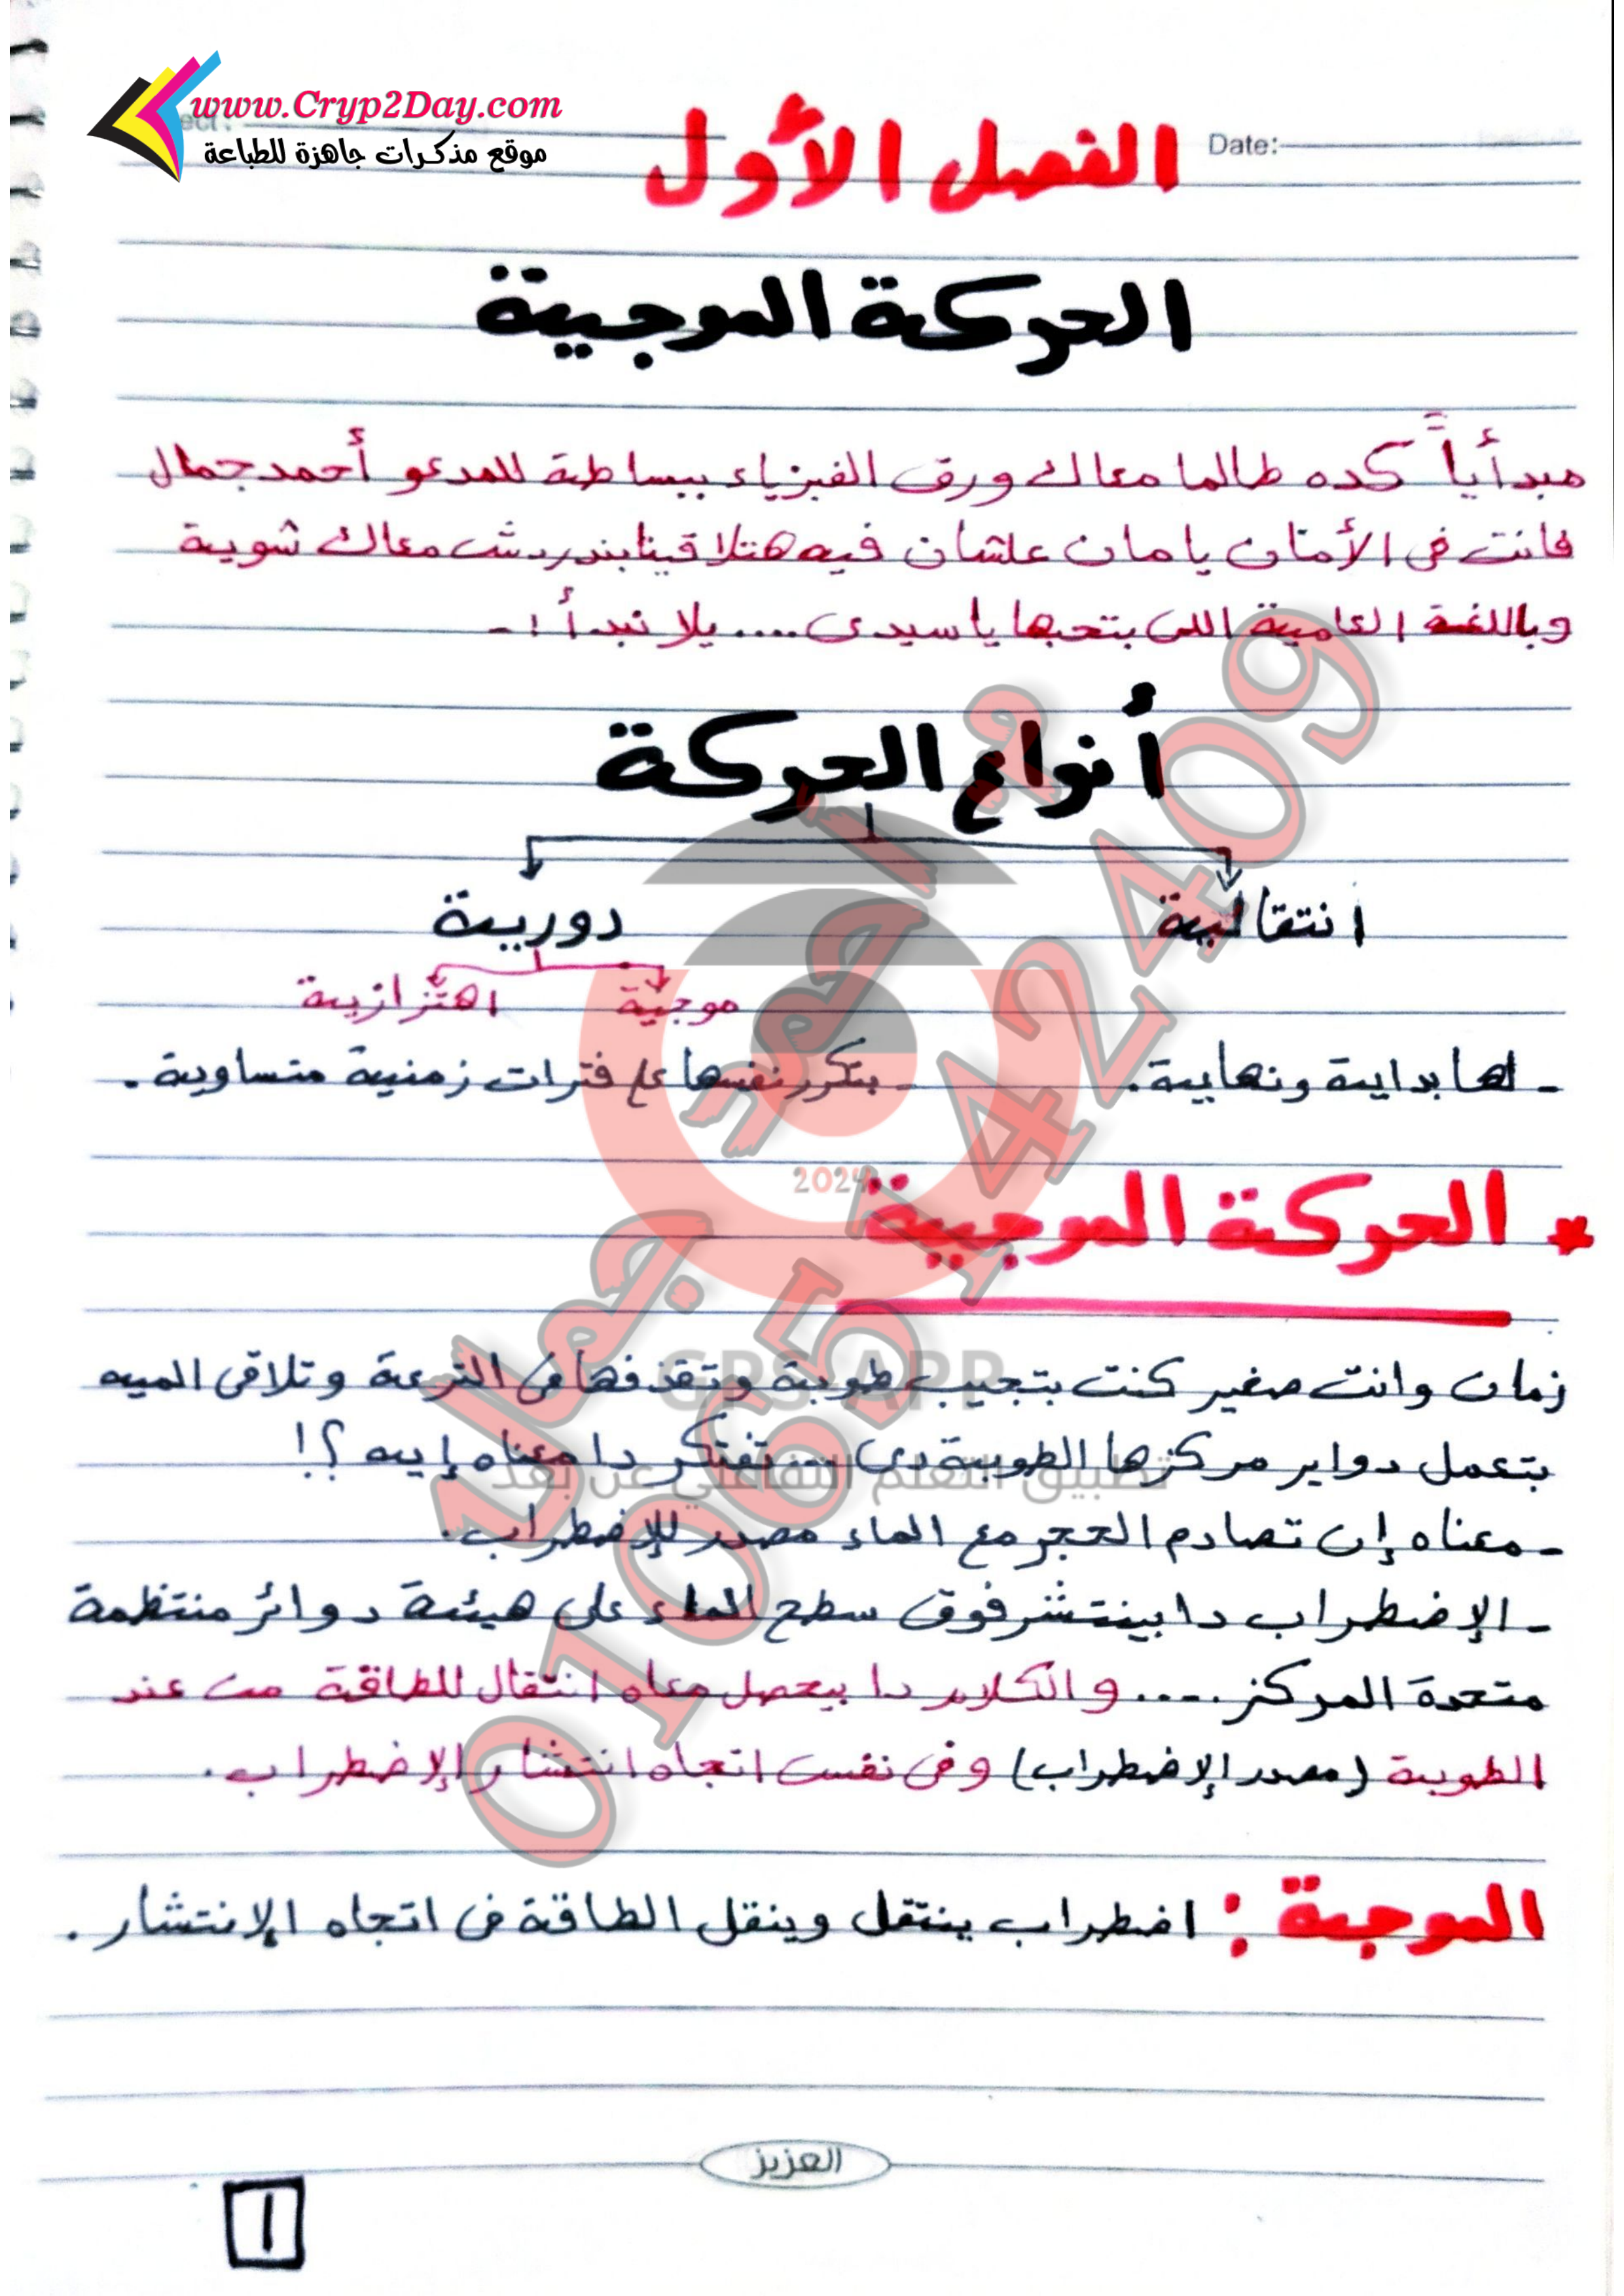 www.Cryp2Day.com
موقع مذكرات جاهزة للطباعة
Date:
الفصل الأول
الحركة الموجية
مبدأياً كده طالما معاك ورق الفيزياء ببساطة للمدعو أحمد جمال
فانت فى الأمان يا مان علشان فيه هتلاقينا بندردش معاك شوية
وباللغة العامية اللى بتحبها يا سيدى .... يلا نبدأ :-
أنواع الحركة
انتقالية
دورية
موجية
اهتزازية
- لها بداية ونهاية.
- بتكرر نفسها على فترات زمنية متساوية.
2024
* الحركة الموجية
زمان وانت صغير كنت بتجيب طوبة وتقذفها فى الترعة وتلاقى الميه
بتعمل دواير مركزها الطوبة دى ... تفتكر دا معناه إيه ؟!
- معناه إن تصادم الحجر مع الماء مصدر للإضطراب.
- الإضطراب دا بينتشر فوق سطح الماء على هيئة دوائر منتظمة
متحدة المركز .... والكلام دا بيحصل معاه انتقال للطاقة من عند
الطوبة (مصدر الإضطراب) وفى نفس اتجاه انتشار الإضطراب.
الموجة : اضطراب ينتقل وينقل الطاقة فى اتجاه الإنتشار.
GPS APP
تطبيق التعلم التفاعلي عن بعد
أحمد جمال
01065142409
العزيز
1